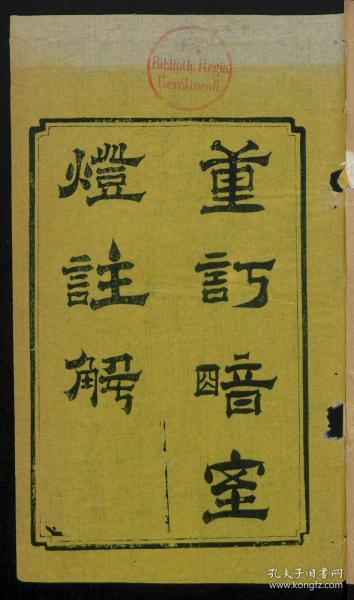 重訂暗室
燈註解
Ex
Biblioth. Regia
Berolinensi.
孔夫子旧书网
www.kongfz.com